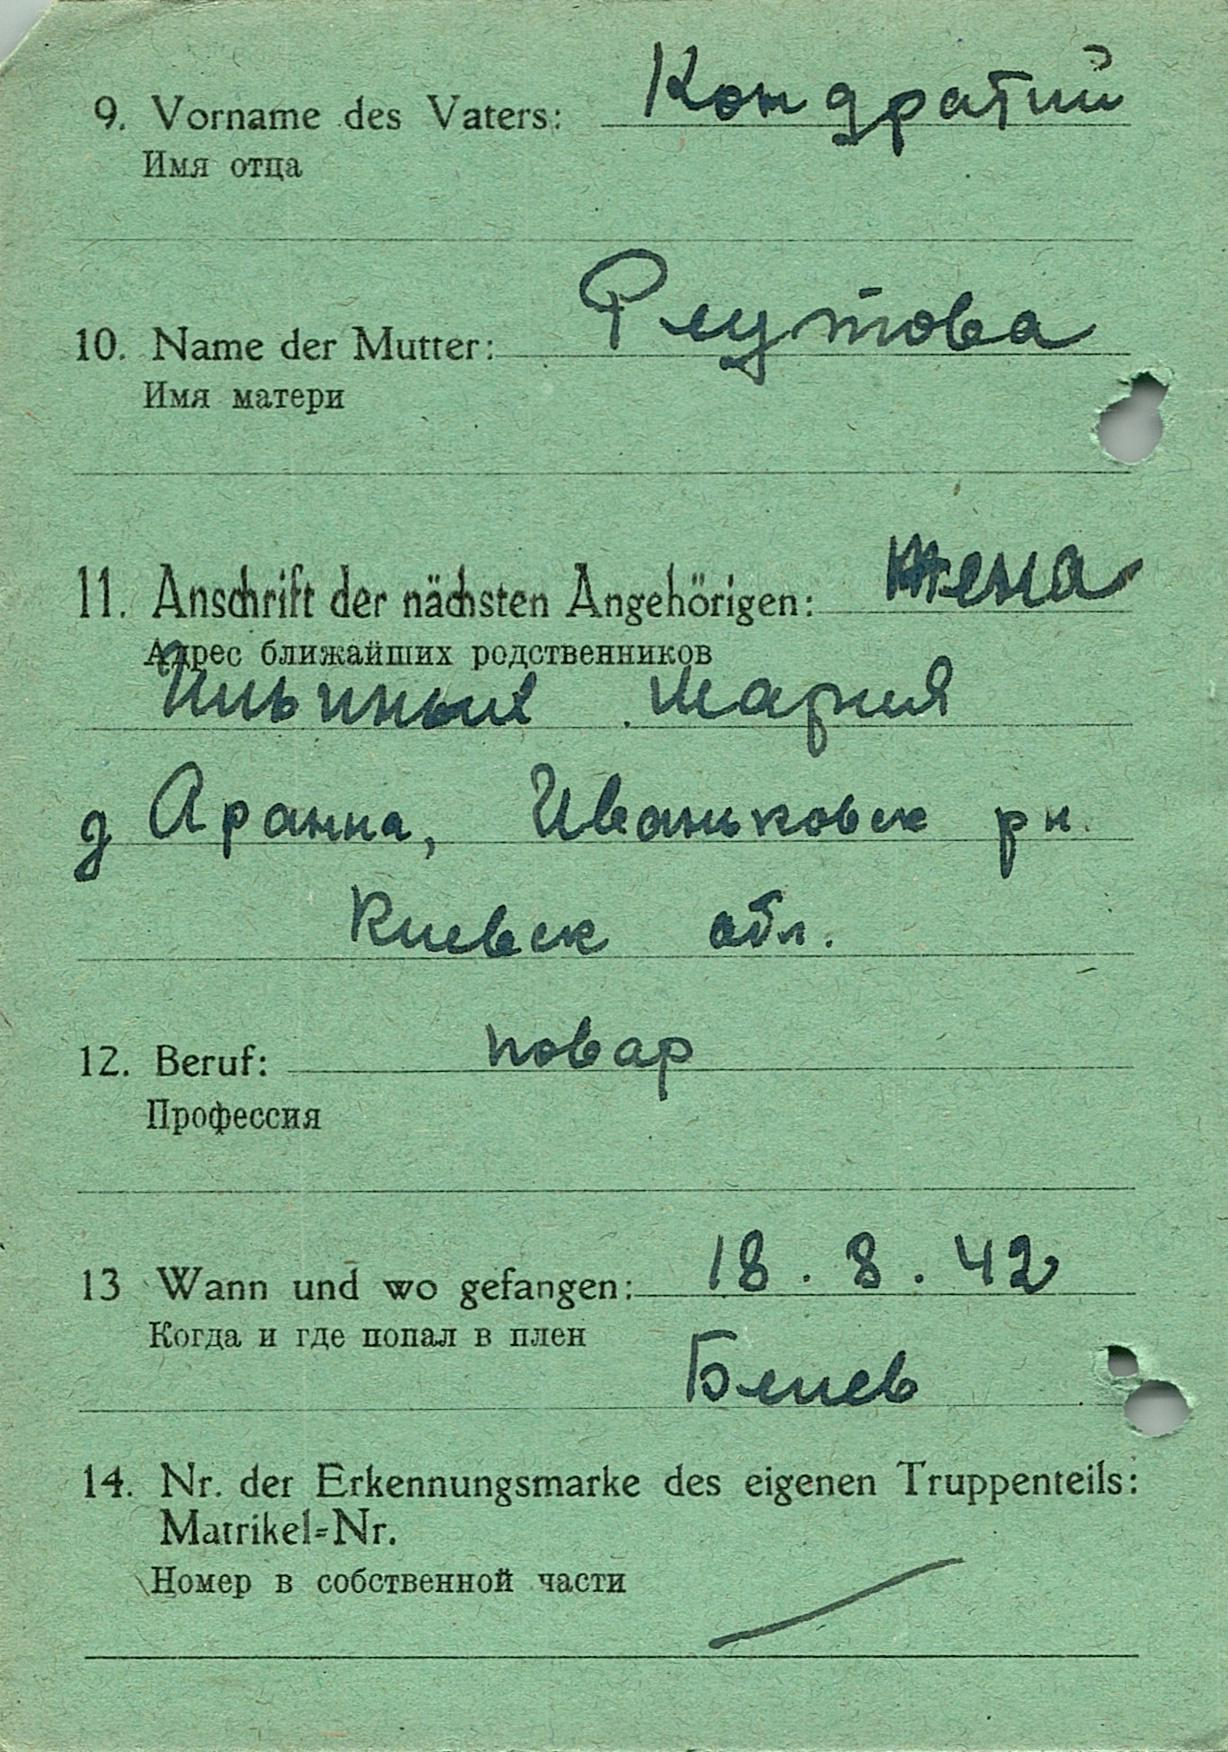 9. Vorname des Vaters: Кондратий
Имя отца
10. Name der Mutter: Реутова
Имя матери
11. Anschrift der nächsten Angehörigen: жена
Адрес ближайших родственников
Ильиных Мария
д Аранна, Иваньковск рн.
Киевск обл.
12. Beruf: повар
Профессия
13 Wann und wo gefangen: 18.8.42
Когда и где попал в плен
Белев
14. Nr. der Erkennungsmarke des eigenen Truppenteils:
Matrikel=Nr.
Номер в собственной части